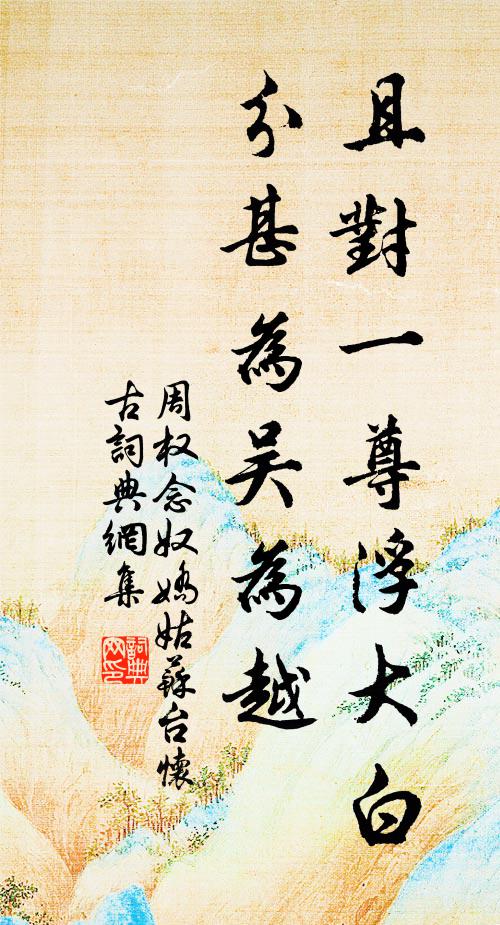 且對一尊浮大白
分甚為吴為越
周权念奴嬌姑蘇台懷
古詞典網集
詞典
网印